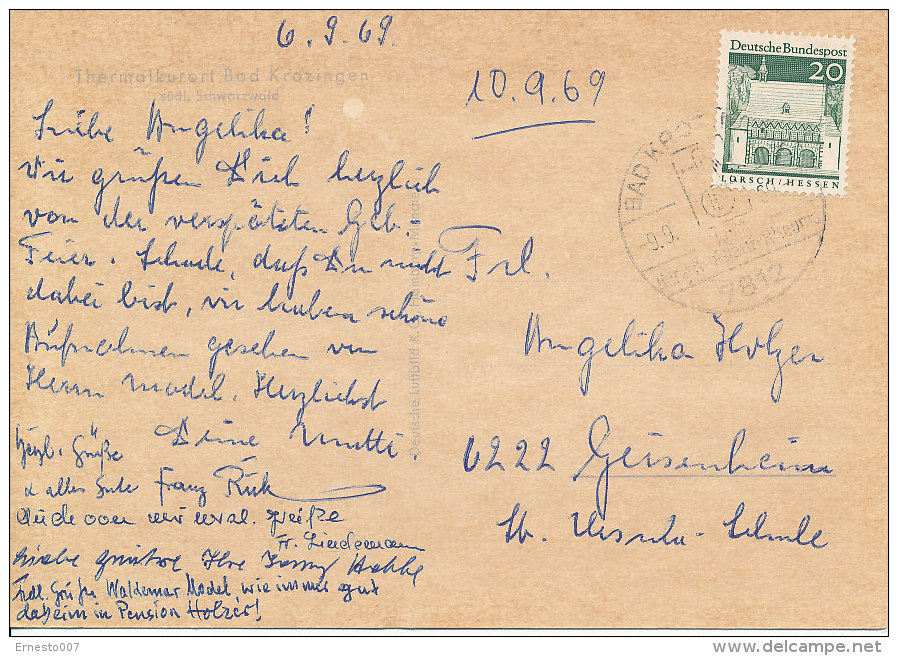 6.9.69.
Thermalkurort Bad Krozingen
südl. Schwarzwald
10.9.69
Deutsche Bundespost
20
LORSCH/HESSEN
BAD KRO
-9.9.
7812
Liebe Angelika!
Wir grüßen Dich herzlich
von der verspäteten Geb.
Feier. Schade, daß Du nicht
dabei bist, wir haben schöne
Aufnahmen gesehen von
Herrn Model. Herzlichst
Deine Mutti.
Herzl. Grüße
& alles Gute Franz
Auch von mir herzl. Grüße
Fr. Lindemann
Liebe Grüße Ihre
Frdl. Grüße Waldemar Model, wie immer gut
daheim in Pension Holzer!
Deutsche Luftbild K.
Frl.
Angelika Holzer
6222 Geisenheim
St. Ursula-Schule
Ernesto007
delcampe.net